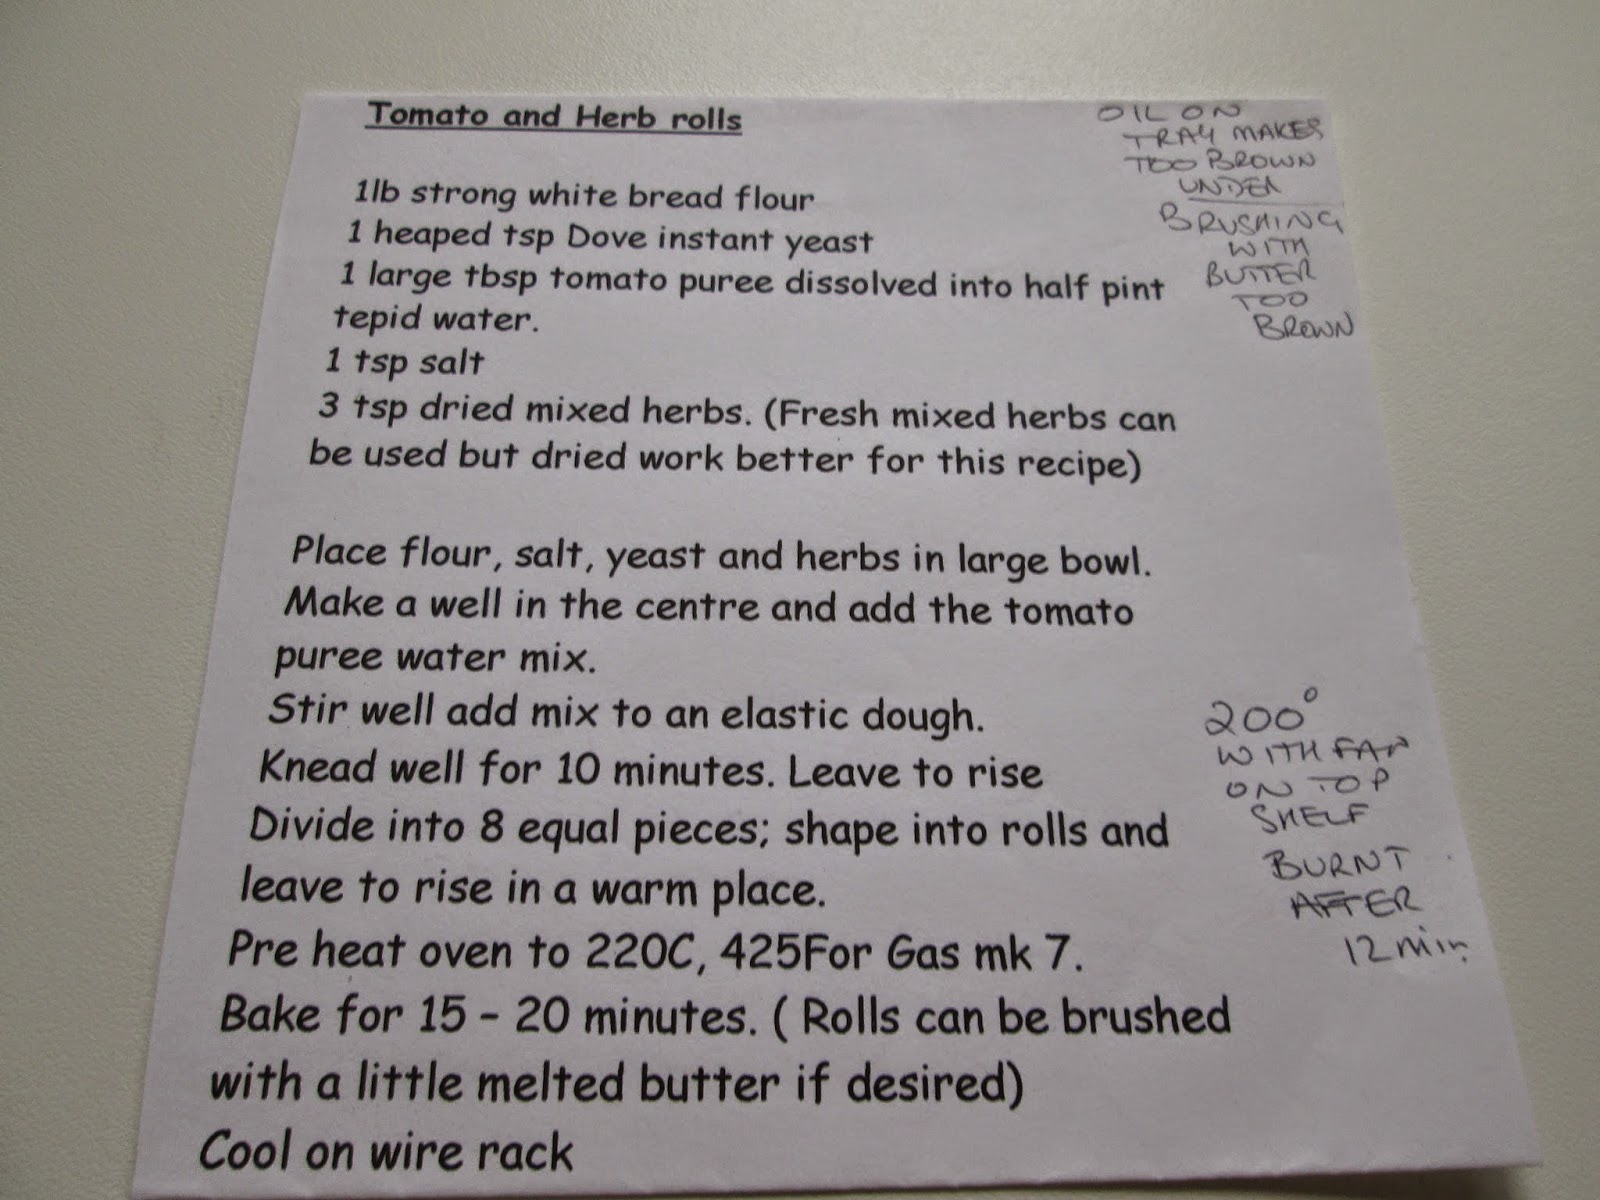 Tomato and Herb rolls
1lb strong white bread flour
1 heaped tsp Dove instant yeast
1 large tbsp tomato puree dissolved into half pint
tepid water.
1 tsp salt
3 tsp dried mixed herbs. (Fresh mixed herbs can
be used but dried work better for this recipe)
Place flour, salt, yeast and herbs in large bowl.
Make a well in the centre and add the tomato
puree water mix.
Stir well add mix to an elastic dough.
Knead well for 10 minutes. Leave to rise
Divide into 8 equal pieces; shape into rolls and
leave to rise in a warm place.
Pre heat oven to 220C, 425For Gas mk 7.
Bake for 15 - 20 minutes. ( Rolls can be brushed
with a little melted butter if desired)
Cool on wire rack
OIL ON
TRAY MAKES
TOO BROWN
UNDER
BRUSHING
WITH
BUTTER
TOO
BROWN
200°
WITH FAN
ON TOP
SHELF
BURNT
AFTER
12 min.